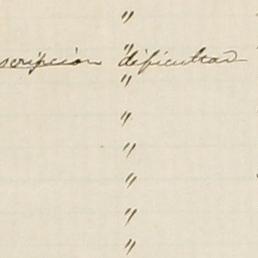 "
"
scripcion dificultad
"
"
"
"
"
"